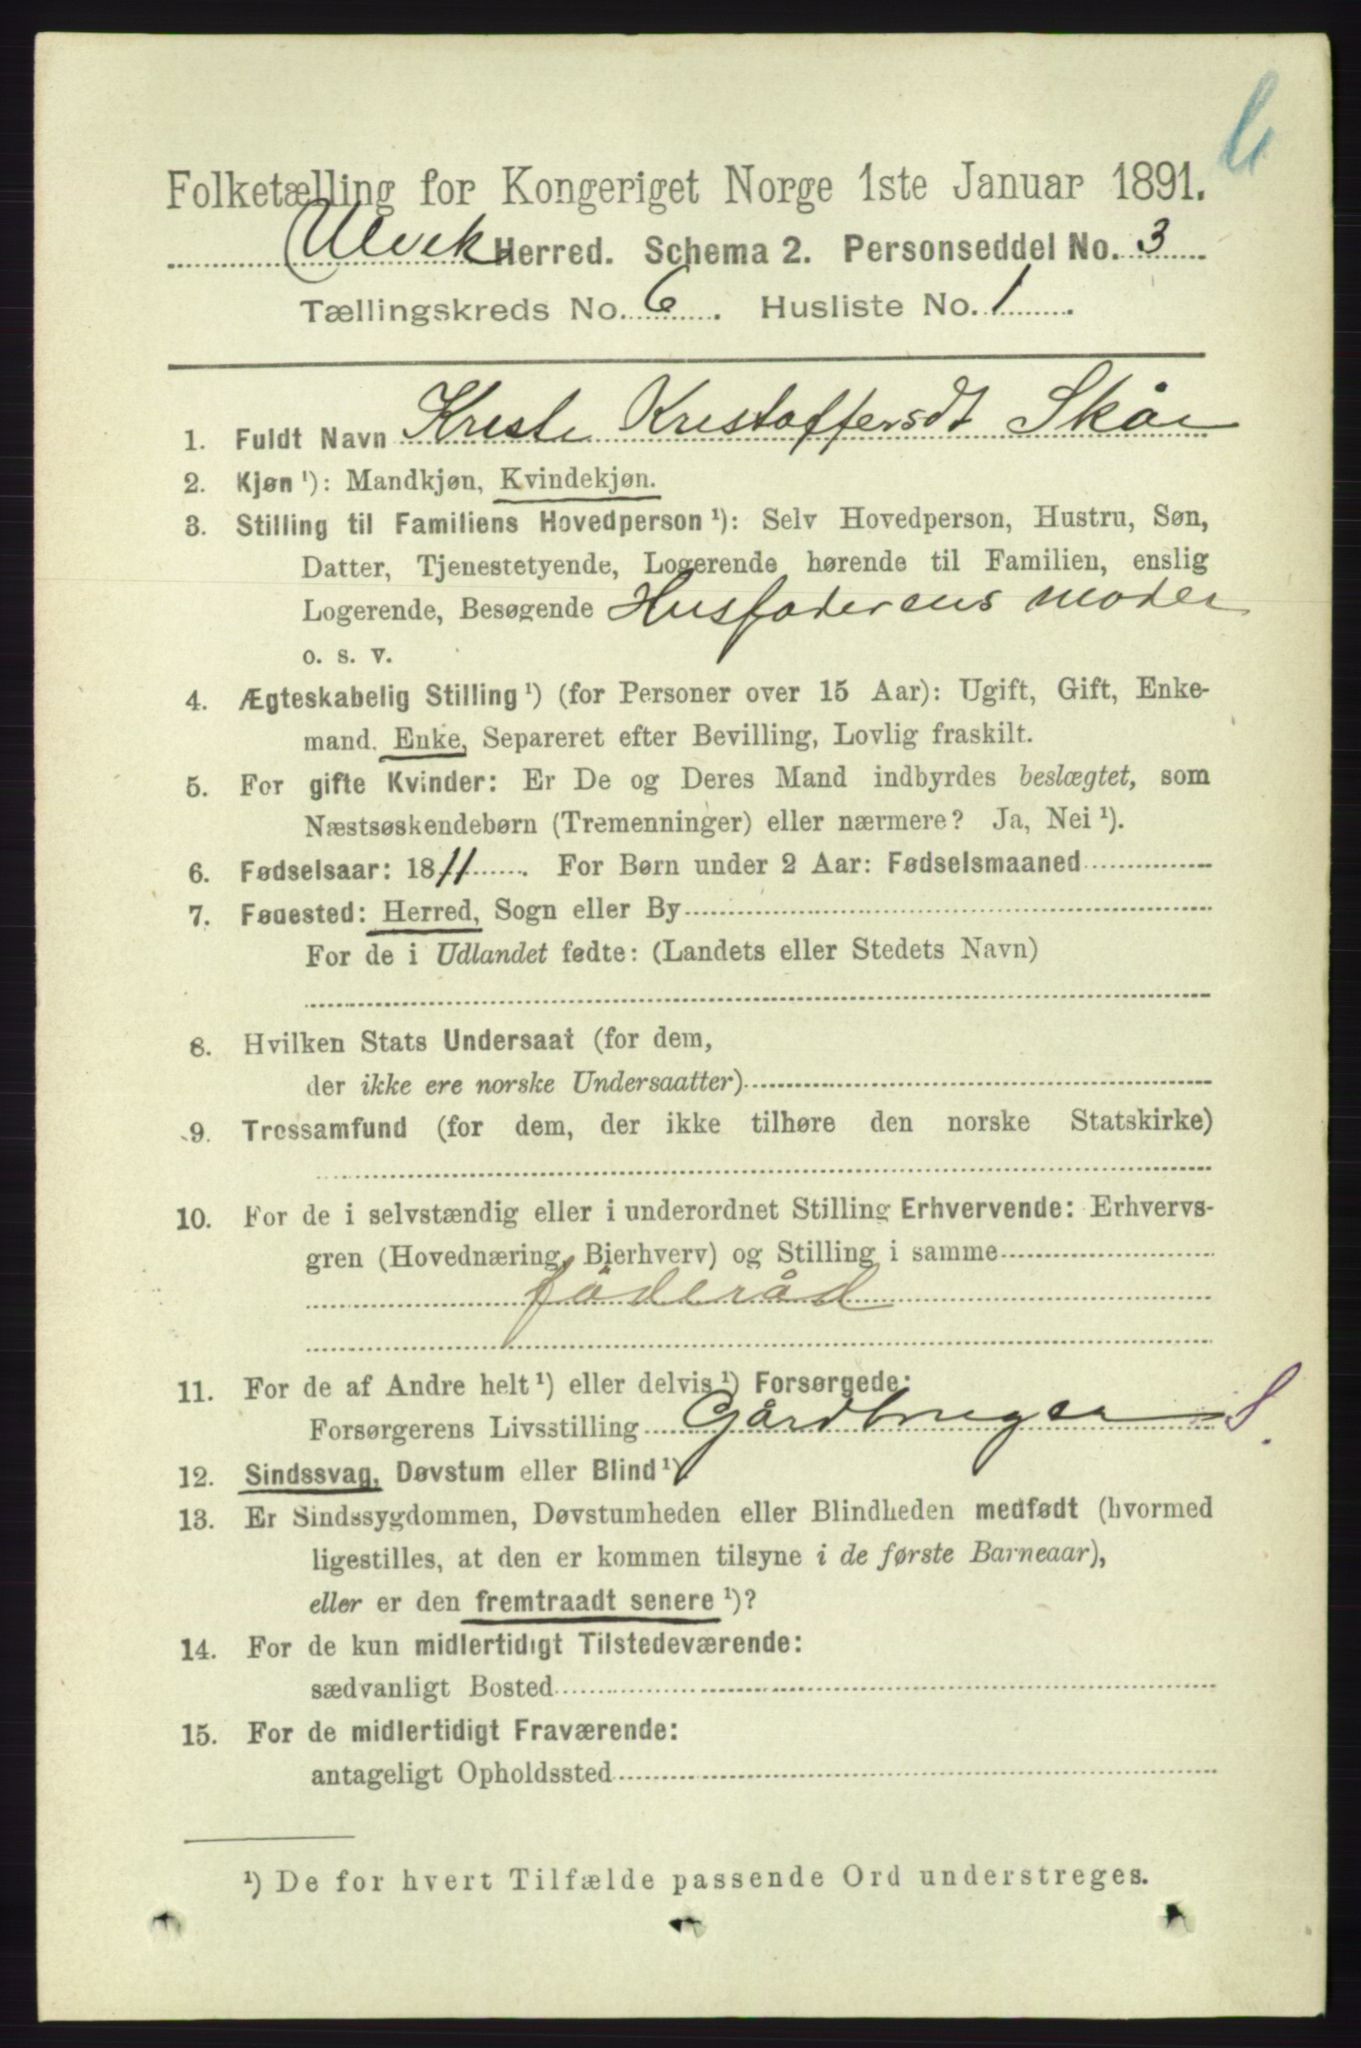 Folketælling for Kongeriget Norge 1ste Januar 1891.
Ulvik Herred. Schema 2. Personseddel No. 3
Tællingskreds No. 6. Husliste No. 1.
1. Fuldt Navn Kristi Kristoffersdt Skår
2. Kjøn ¹): Mandkjøn, Kvindekjøn.
3. Stilling til Familiens Hovedperson ¹): Selv Hovedperson, Hustru, Søn,
Datter, Tjenestetyende, Logerende hørende til Familien, enslig
Logerende, Besøgende Husfaderens moder
o. s. v.
4. Ægteskabelig Stilling ¹) (for Personer over 15 Aar): Ugift, Gift, Enke-
mand. Enke, Separeret efter Bevilling, Lovlig fraskilt.
5. For gifte Kvinder: Er De og Deres Mand indbyrdes beslægtet, som
Næstsøskendebørn (Tremenninger) eller nærmere? Ja, Nei ¹).
6. Fødselsaar: 1811. For Børn under 2 Aar: Fødselsmaaned
7. Fødested: Herred, Sogn eller By
For de i Udlandet fødte: (Landets eller Stedets Navn)
8. Hvilken Stats Undersaat (for dem,
der ikke ere norske Undersaatter)
9. Trossamfund (for dem, der ikke tilhøre den norske Statskirke)
10. For de i selvstændig eller i underordnet Stilling Erhvervende: Erhvervs-
gren (Hovednæring, Bierhverv) og Stilling i samme
föderåd
11. For de af Andre helt ¹) eller delvis ¹) Forsørgede:
Forsørgerens Livsstilling Gårdbruger S.
12. Sindssvag, Døvstum eller Blind ¹)
13. Er Sindssygdommen, Døvstumheden eller Blindheden medfødt (hvormed
ligestilles, at den er kommen tilsyne i de første Barneaar),
eller er den fremtraadt senere ¹)?
14. For de kun midlertidigt Tilstedeværende:
sædvanligt Bosted
15. For de midlertidigt Fraværende:
antageligt Opholdssted
¹) De for hvert Tilfælde passende Ord understreges.